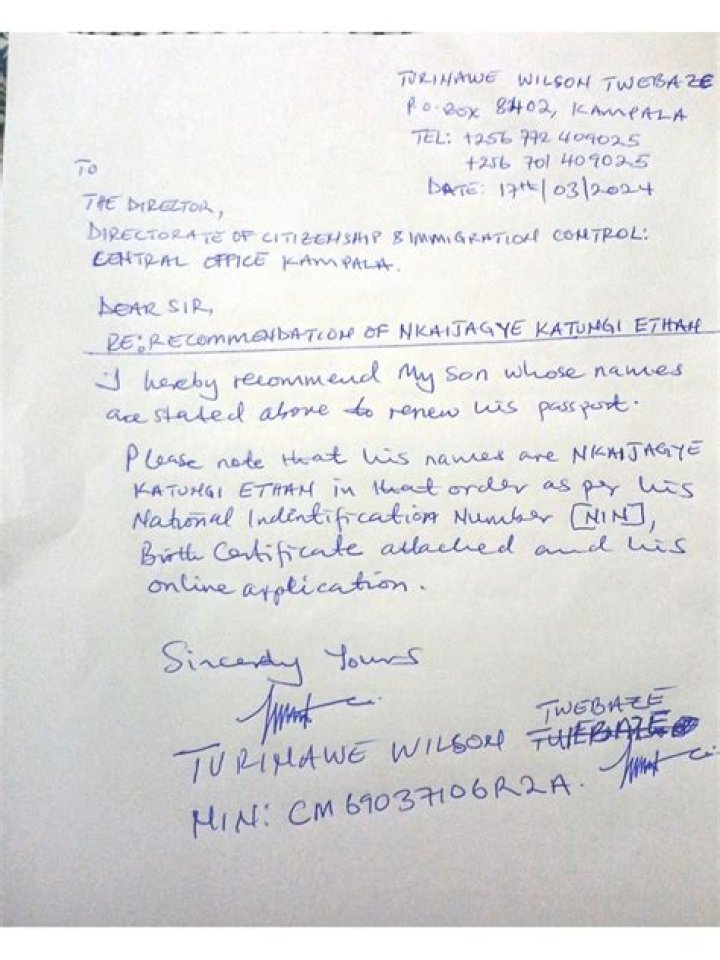 TURINAWE WILSON TWEBAZE
P.O. BOX 8402, KAMPALA
TEL: +256 772 409025
+256 701 409025
DATE: 17th/03/2024
TO
THE DIRECTOR,
DIRECTORATE OF CITIZENSHIP & IMMIGRATION CONTROL:
CENTRAL OFFICE KAMPALA.
DEAR SIR,
RE: RECOMMENDATION OF NKAIJAGYE KATUNGI ETHAN
I hereby recommend My son whose names
are stated above to renew his passport.
Please note that his names are NKAIJAGYE
KATUNGI ETHAN in that order as per his
National Indentification Number [NIN],
Birth Certificate attached and his
online application.
Sincerely Yours
TWEBAZE
TURINAWE WILSON TWEBAZE
NIN: CM69037106R2A.